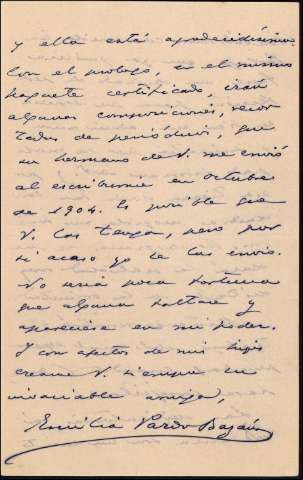 y ella está agradecidísima.
Con el prologo, en el mismo
paquete certificado, irán
algunas composiciones, recor
tadas de periódicos, que
su hermano de V. me envió
al escribirme en octubre
de 1904. Es posible que
V. las tenga, pero por
si acaso yo se las envio.
No sería poca fortuna
que alguna faltase y
apareciese en mi poder.
Y con afectos de mis hijos
creame V. siempre su
invariable amiga,
Emilia Pardo Bazán